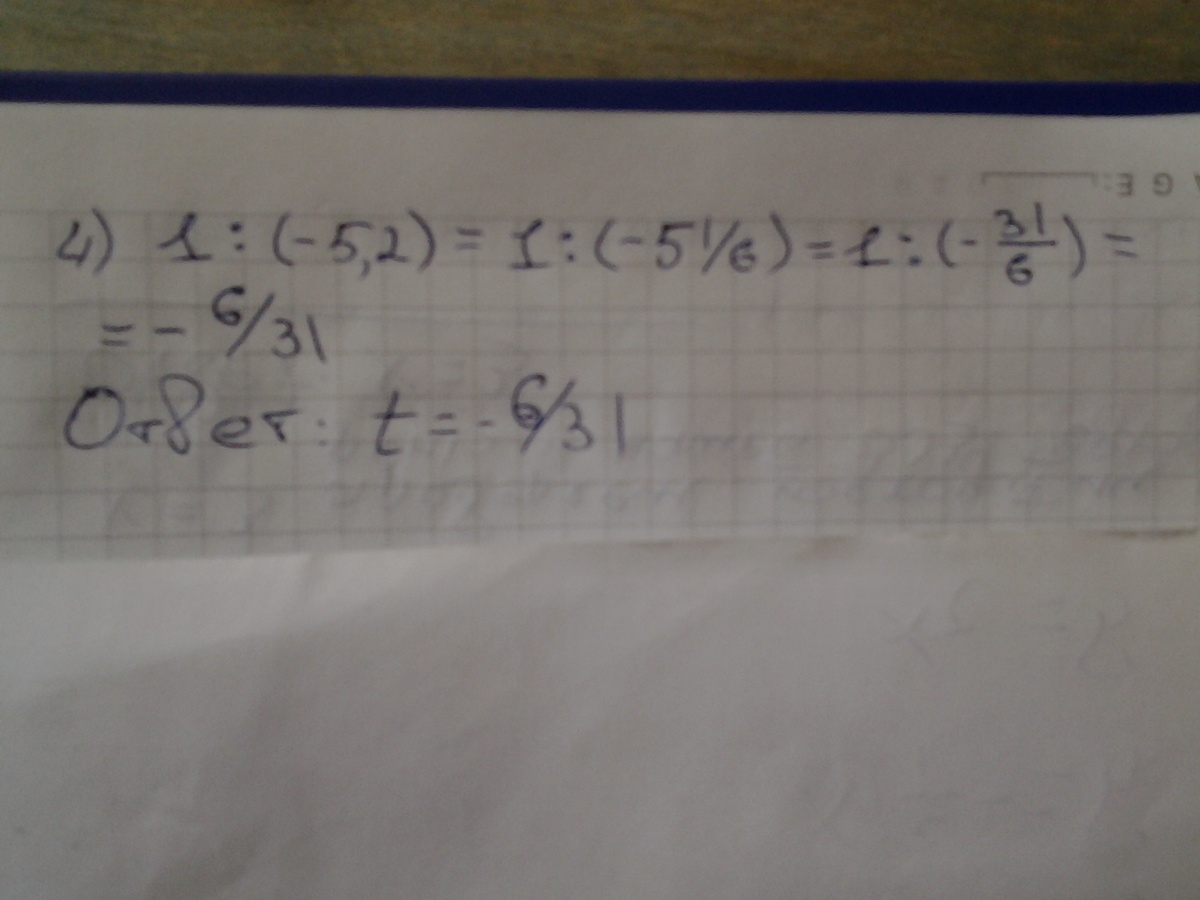 4) 1 : (-5,2) = 1 : (-5 1/6) = 1 : (- 31/6) =
= - 6/31
Ответ: t = - 6/31